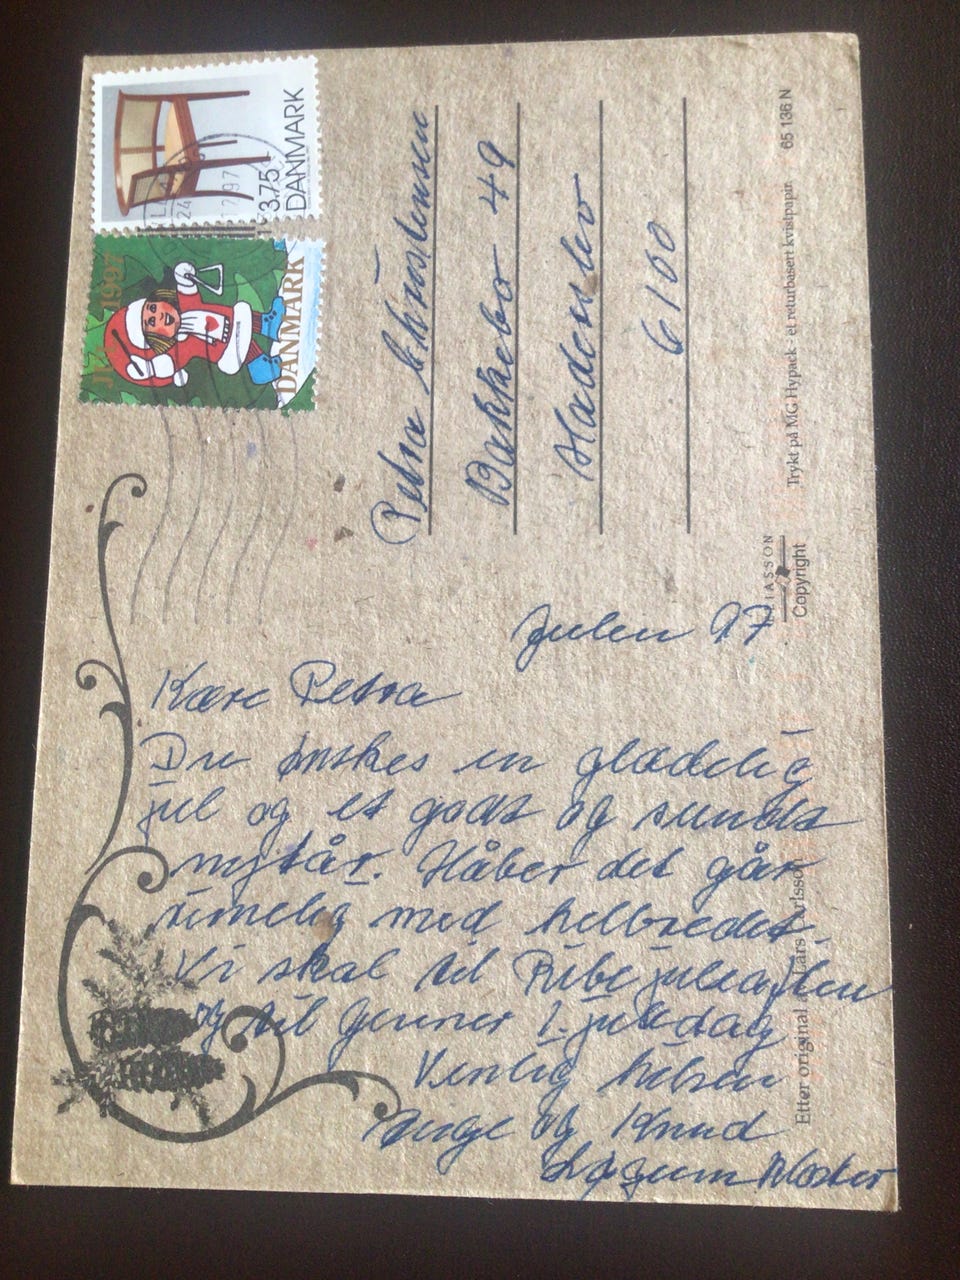 DANMARK
3.75
JUL 1997
DANMARK
Petra Christensen
Bakkebo 49
Haderslev
6100
65 136 N
Trykt på MG Hypack - et returbasert kvistpapir.
ELIASSON
Copyright
Etter original av Lars Carlsson
Julen 97
Kære Petra
Du ønskes en glædelig
jul og et godt og sundt
nytår. Håber det går
rimelig med helbredet.
Vi skal til Ribe juleaften
og til Genner 1. juledag
Venlig hilsen
Inge og Knud
Løgumkloster